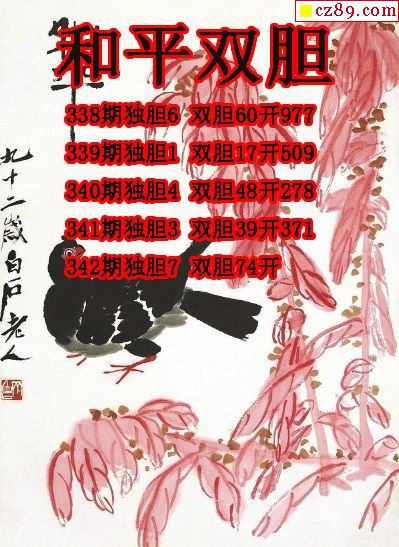 cz89.com
和平双胆
338期独胆6 双胆60开977
339期独胆1 双胆17开509
340期独胆4 双胆48开278
341期独胆3 双胆39开371
342期独胆7 双胆74开
九十二岁白石老人